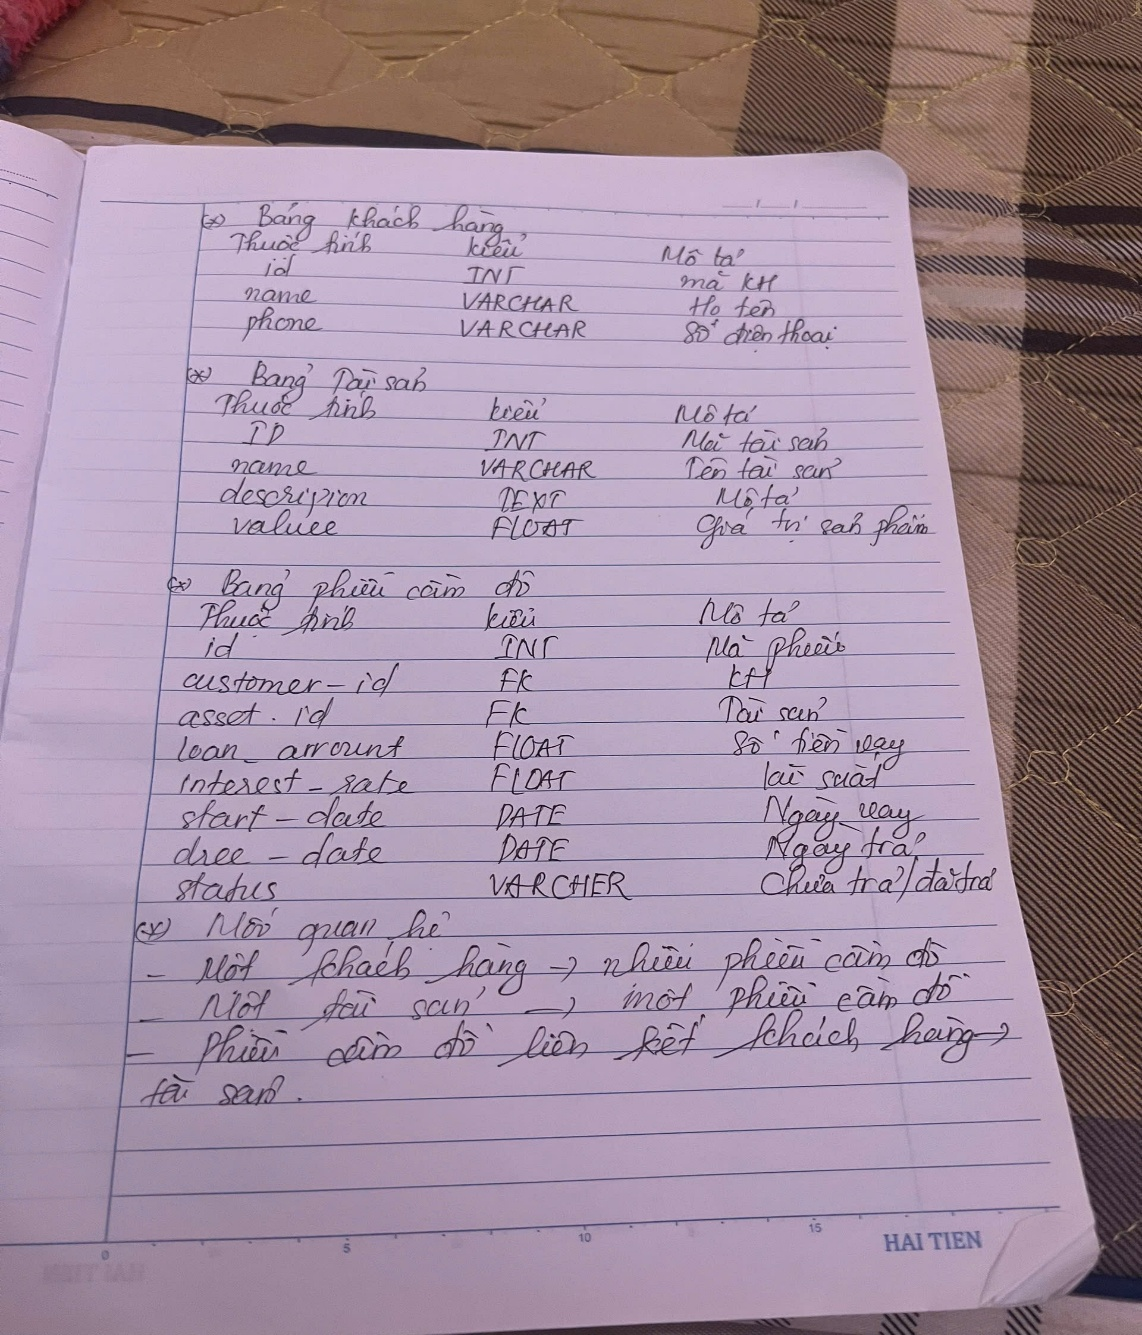 (*) Bảng khách hàng
Thuộc tính kiểu Mô tả
id INT mã KH
name VARCHAR Họ tên
phone VARCHAR Số điện thoại
(*) Bảng Tài sản
Thuộc tính kiểu Mô tả
ID INT Mã tài sản
name VARCHAR Tên tài sản
descripion TEXT Mô tả
valuee FLOAT Giá trị sản phẩm
(*) Bảng phiếu cầm đồ
Thuộc tính kiểu Mô tả
id INT Mã phiếu
customer-id FK KH
asset.id FK Tài sản
loan_arrount FLOAT Số tiền vay
interest-rate FLOAT lãi suất
start-date DATE Ngày vay
dree-date DATE Ngày trả
status VARCHER Chưa trả/đã trả
(*) Mối quan hệ
- Một khách hàng → nhiều phiếu cầm đồ
- Một tài sản → một phiếu cầm đồ
- Phiếu cầm đồ liên kết khách hàng →
tài sản.
0 5 10 15
HAI TIEN